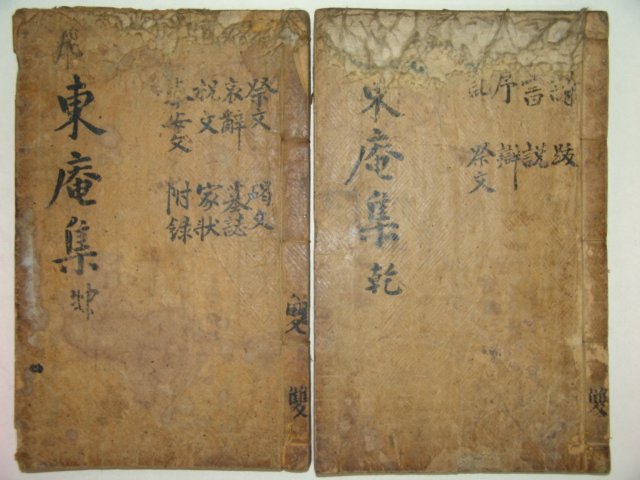 書 說
序 辯
記 祭文
東庵集 乾
雙
祭文 碣文
哀辭 墓誌
祝文 家狀
奉安文 附録
東庵集 坤
雙 雙